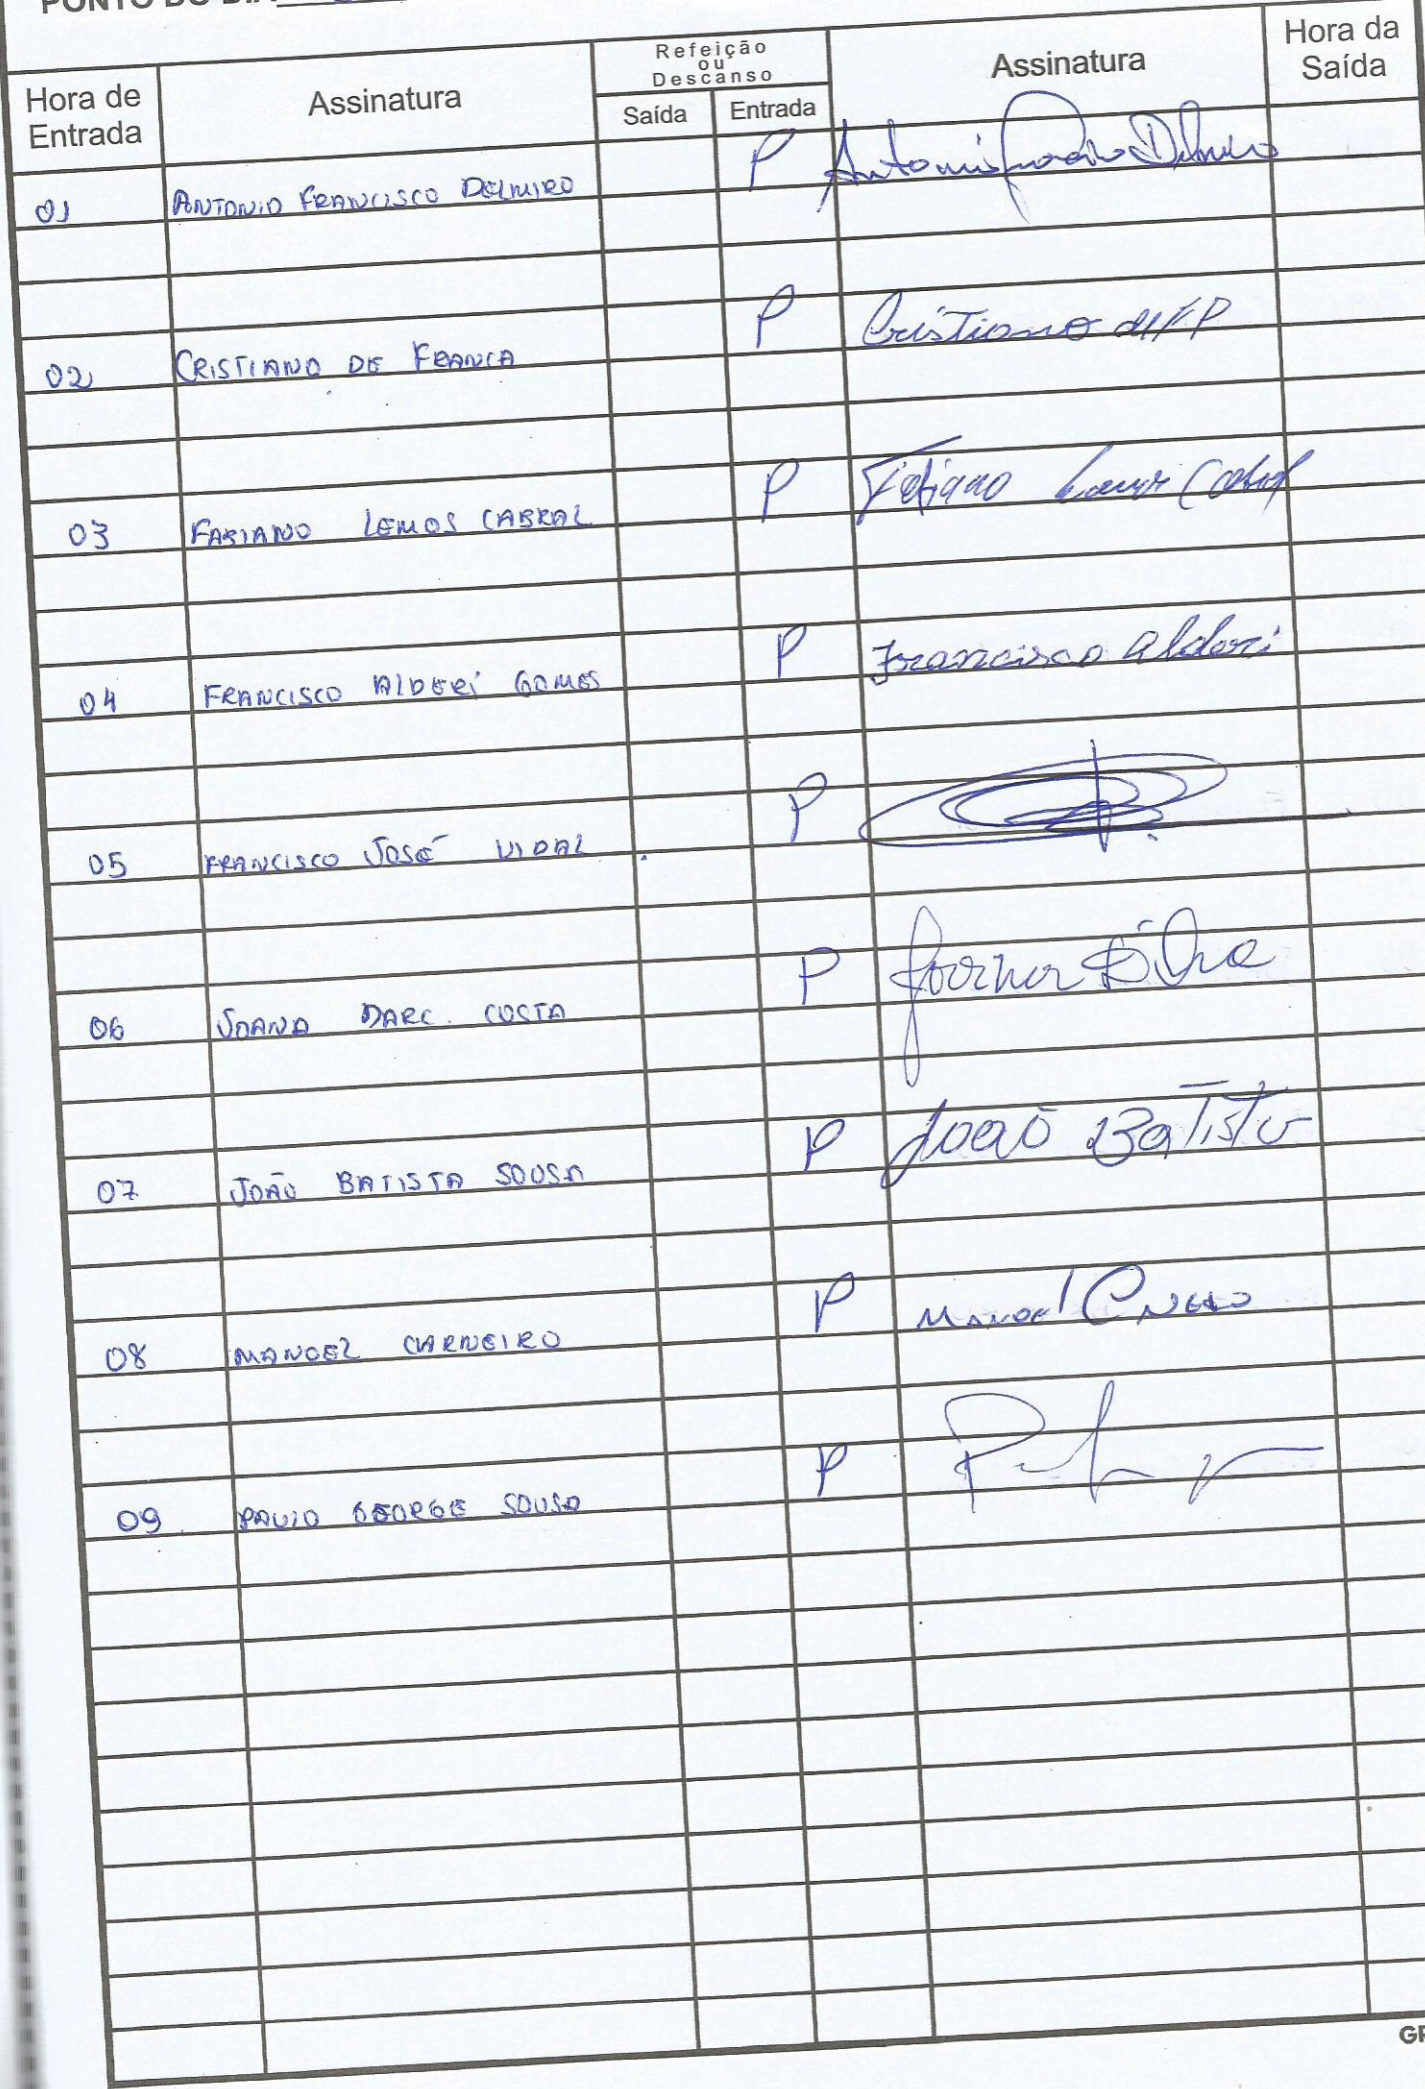 PONTO DO DIA
Hora de Entrada Assinatura Refeição ou Descanso Saída Entrada Assinatura Hora da Saída
01 ANTONIO FRANCISCO DELMIRO P Antonio Francisco Delmiro
02 CRISTIANO DE FRANCA P Cristiano
03 FABIANO LEMOS CABRAL P Fabiano Lemos Cabral
04 FRANCISCO ALDERÍ GOMES P Francisco Alderi
05 FRANCISCO JOSÉ VIDAL P
06 JOANA DARC. COSTA P
07 JOÃO BATISTA SOUSA P João Batista
08 MANOEL CARNEIRO P Manoel
09 PAULO GEORGE SOUSA P